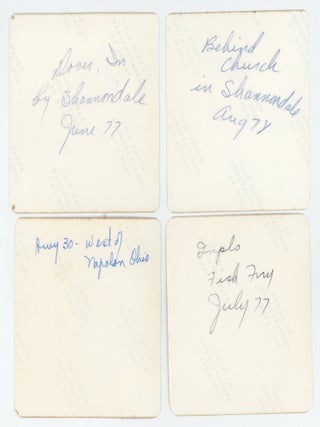 Dover, In.
by Shannondale
June 77
Behind
Church
in Shannondale
Aug 78
Hwy 30 - West of
Napolon Ohio
Fish Fry
July 77